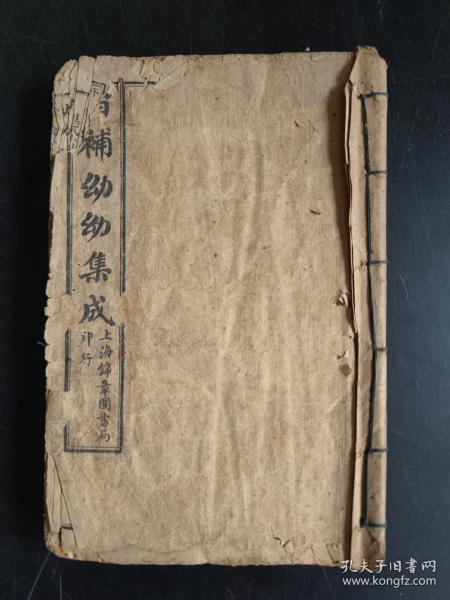 補幼幼集成
上海錦章圖書局
印行
孔夫子旧书网
www.kongfz.com